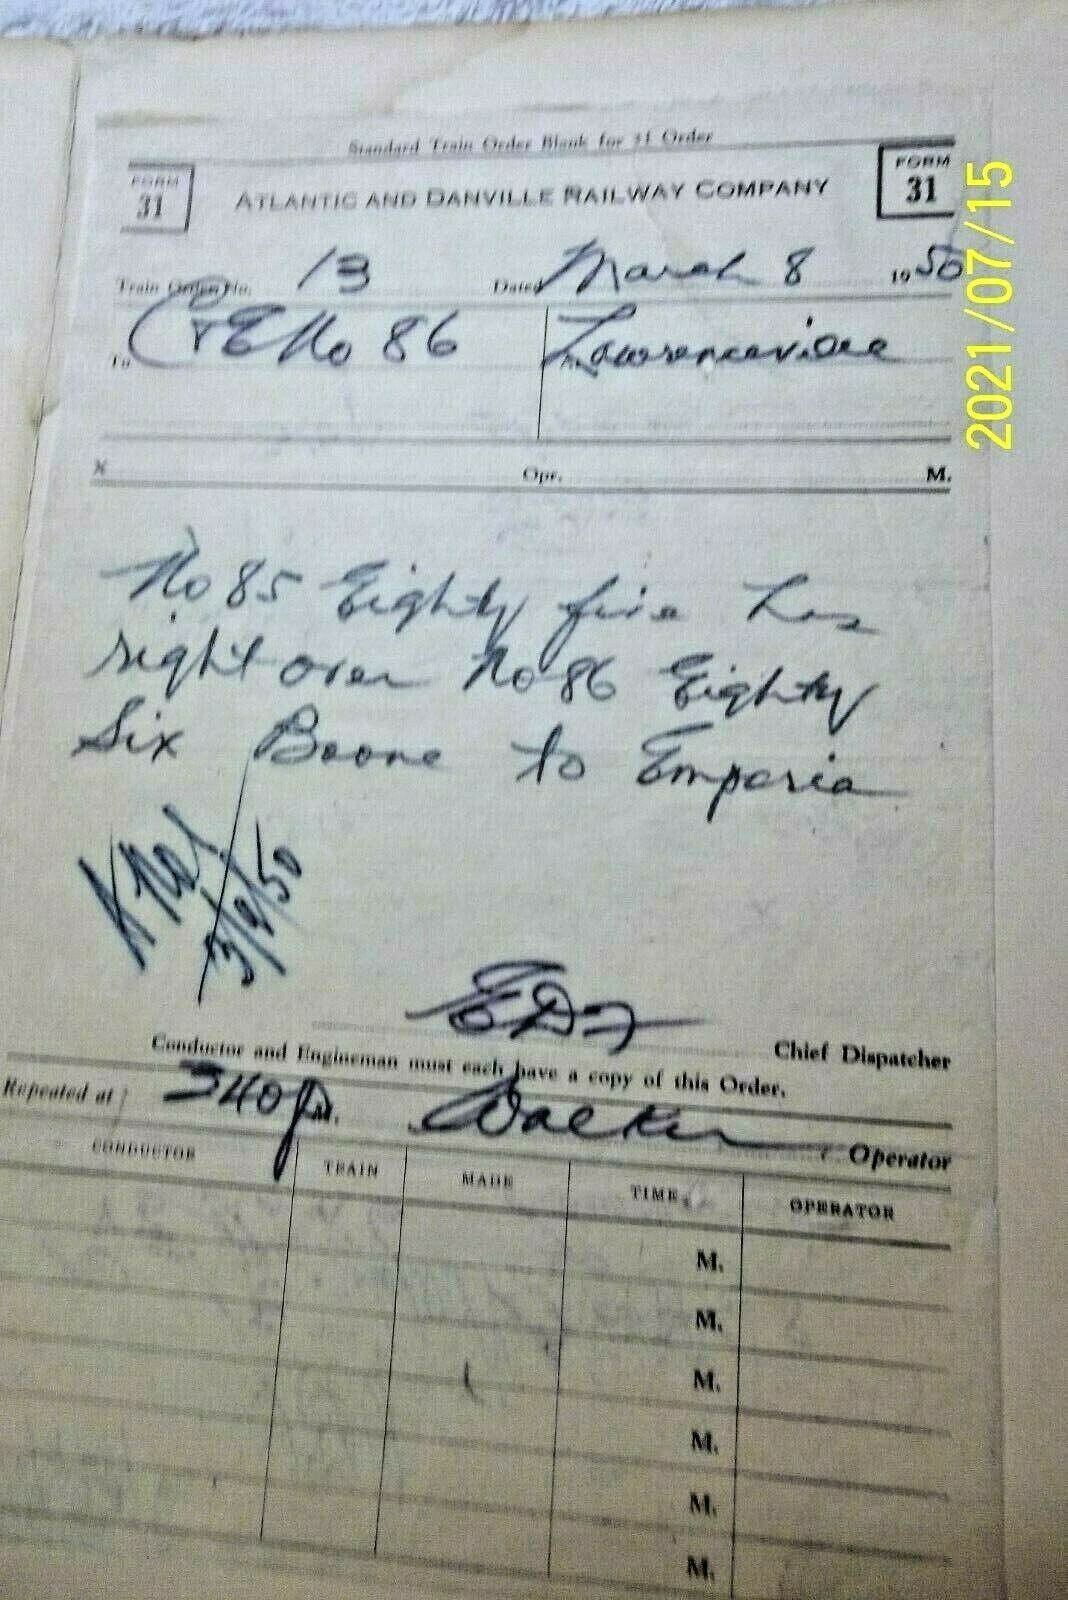 Standard Train Order Blank for 31 Order
FORM 31
ATLANTIC AND DANVILLE RAILWAY COMPANY
FORM 31
Train Order No. 13 Dated March 8 1950
To C&E No 86 At Lawrenceville
X Opr. M.
No 85 Eighty five has
right over No 86 Eighty
Six Boone to Emporia
3/8/50
Chief Dispatcher
Conductor and Engineman must each have a copy of this Order.
Repeated at 340 P M. Walker Operator
CONDUCTOR TRAIN MADE TIME OPERATOR
M.
M.
M.
M.
M.
M.
2021/07/15